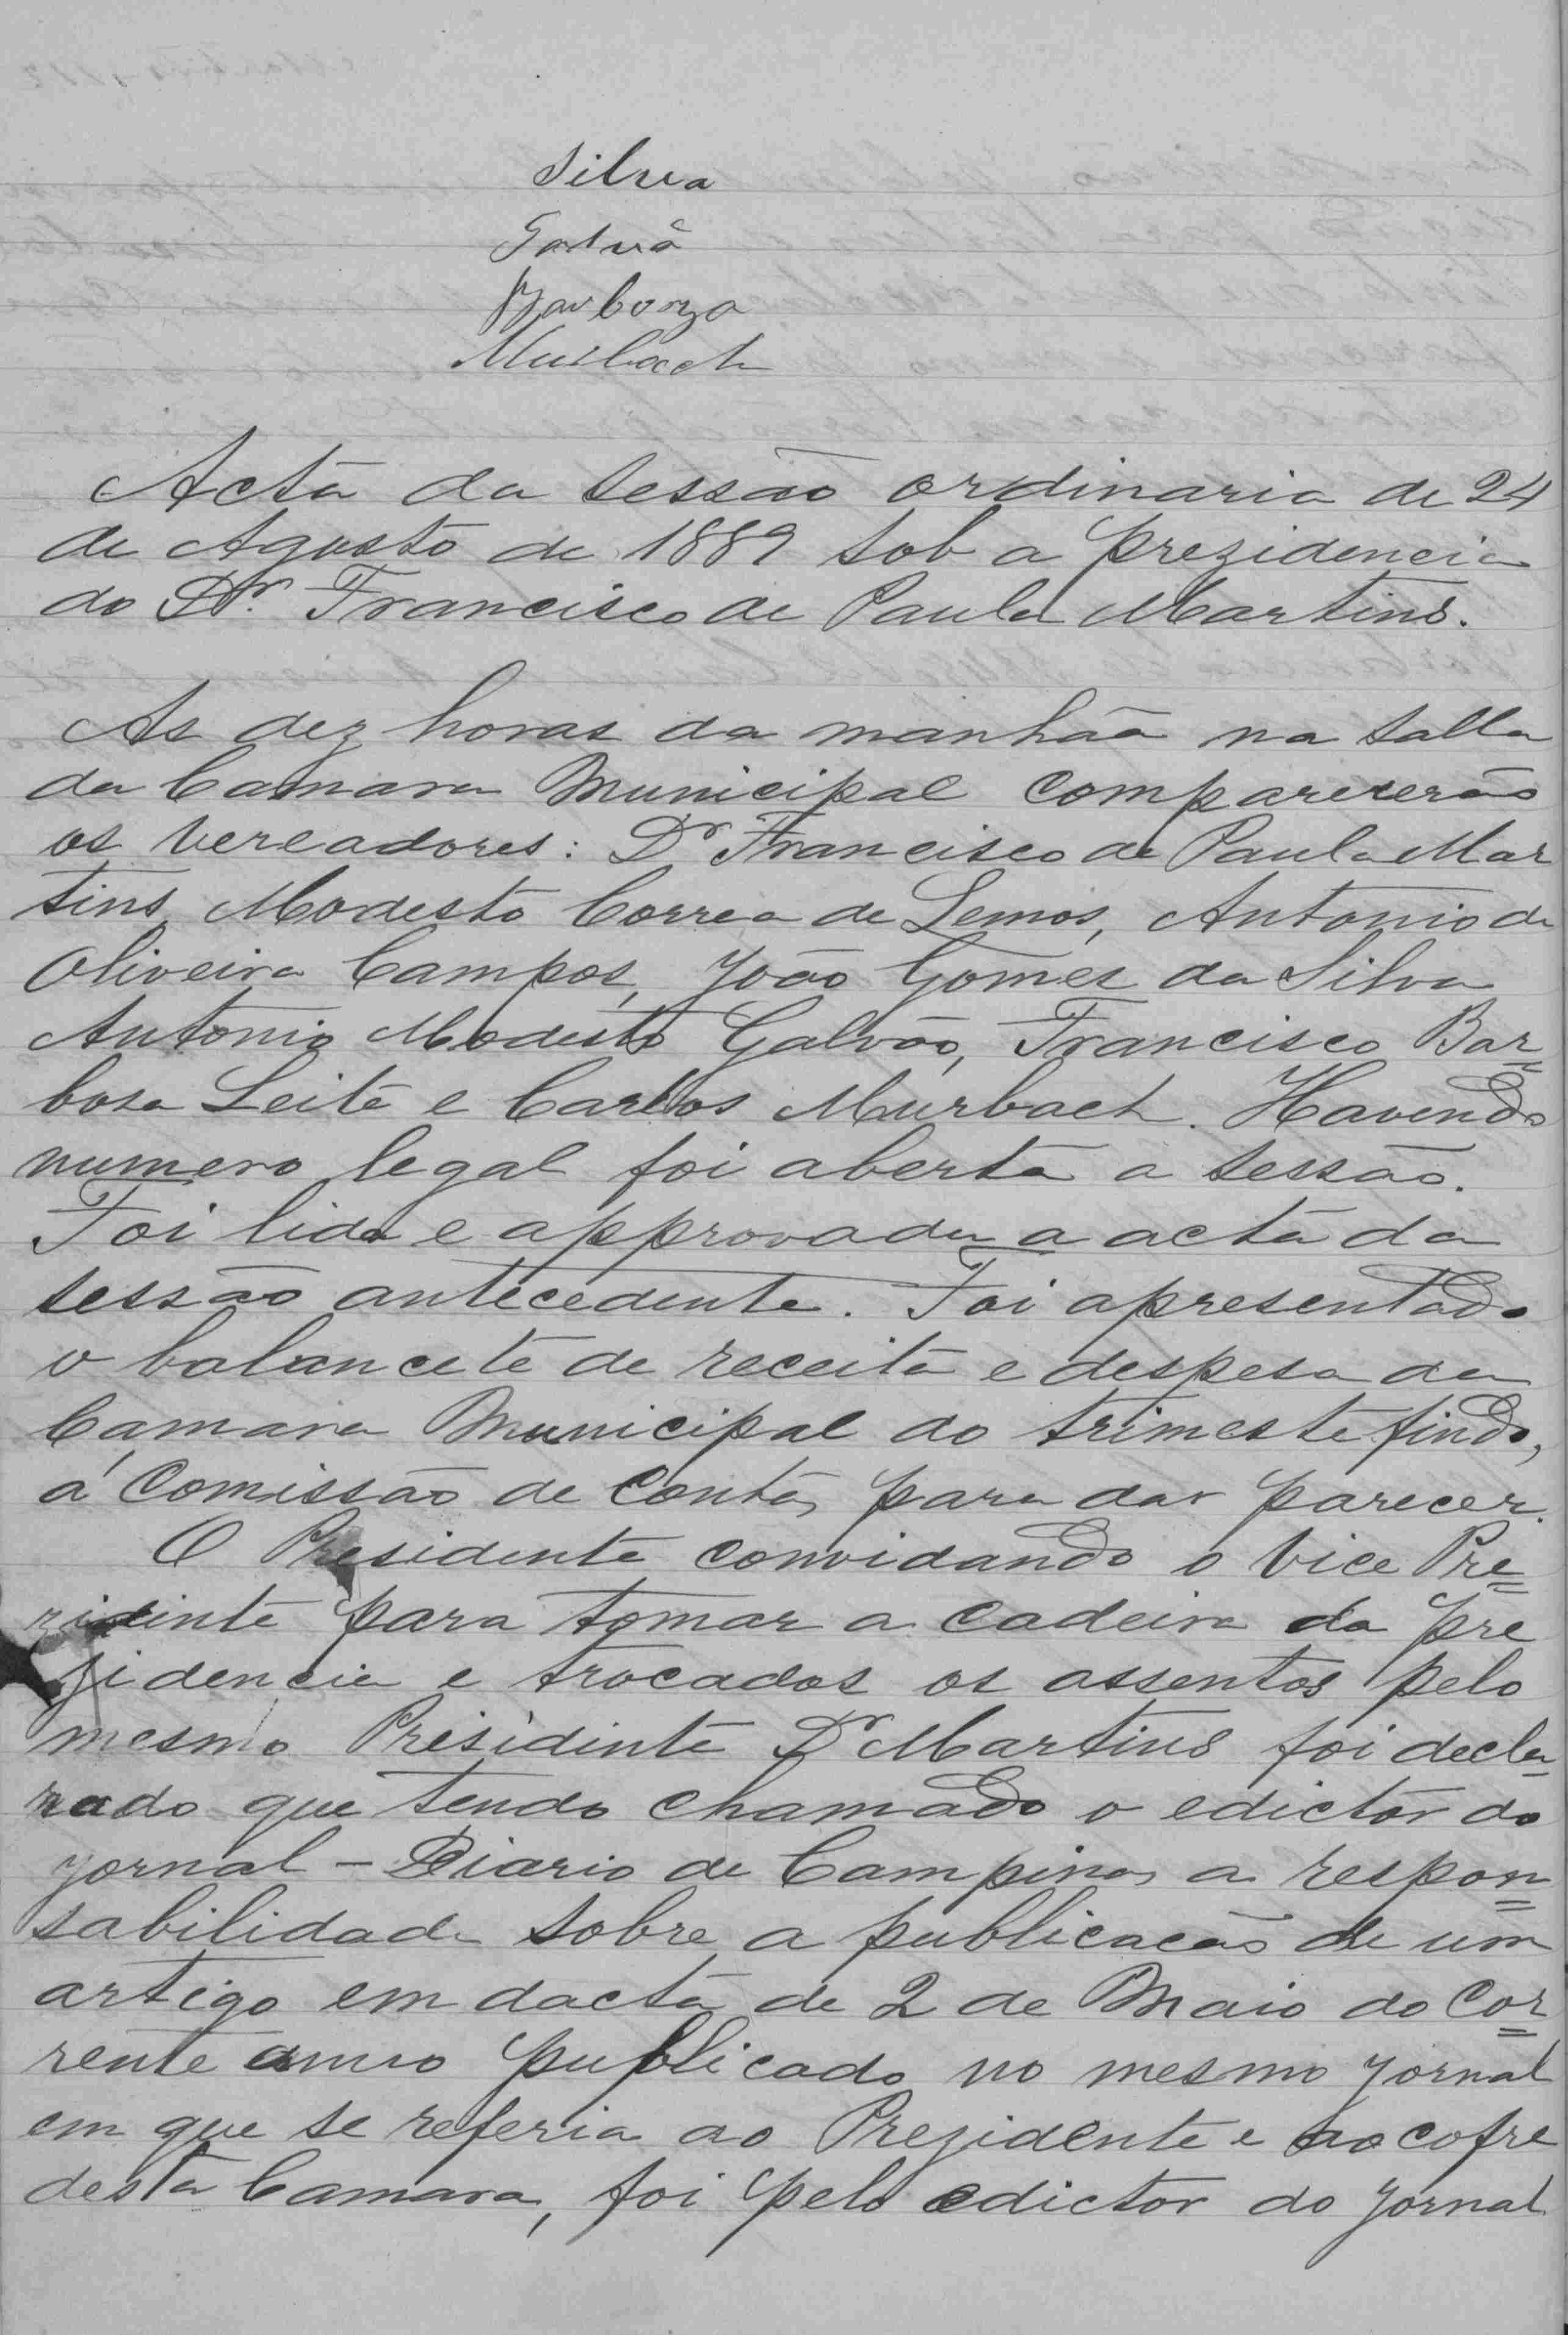 Silva
Galvã
Barboza
Murbach
Acta da sessão ordinaria de 24
de Agosto de 1889 sob a prezidencia
do Dr. Francisco de Paula Martins.
As dez horas da manhãa na salla
da Camara Municipal comparecerão
os vereadores: Dr Francisco de Paula Mar
tins, Modesto Correa de Lemos, Antonio de
Oliveira Campos, João Gomes da Silva
Antonio Modesto Galvão, Francisco Bar=
bosa Leite e Carlos Murbach. Havendo
numero legal foi aberta a sessão.
Foi lida e approvada a acta da
sessão antecedente. Foi apresentado
o balancete de receita e despesa da
Camara Municipal do trimeste findo,
á Comissão de Contas para dar parecer.
O Presidente convidando o Vice Pre=
zidinte para tomar a cadeira da pre
zidencia e trocados os assentos pelo
mesmo Presidinte Dr Martins foi decla-
rado que tendo chamado o edictor do
jornal - Diario de Campinas a respon=
sabilidade sobre a publicacão de um
artigo em dacta de 2 de Maio do Cor=
rente anno publicado no mesmo jornal
em que se referia ao Prezidente e ao cofre
desta Camara, foi pelo edictor do jornal